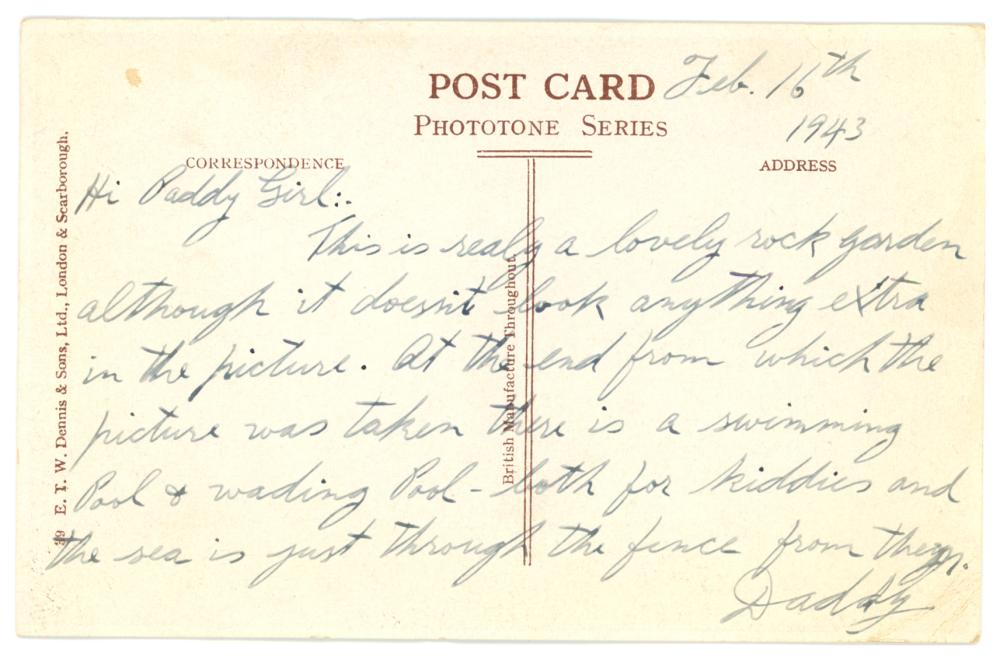 POST CARD
PHOTOTONE SERIES
CORRESPONDENCE
ADDRESS
Feb. 16th
1943
Hi Paddy Girl:.
This is realy a lovely rock garden
although it doesn't look anything extra
in the picture. At the end from which the
picture was taken there is a swimming
Pool & wading Pool - both for kiddies and
the sea is just through the fence from them.
Daddy
E. T. W. Dennis & Sons, Ltd., London & Scarborough.
British Manufacture Throughout.